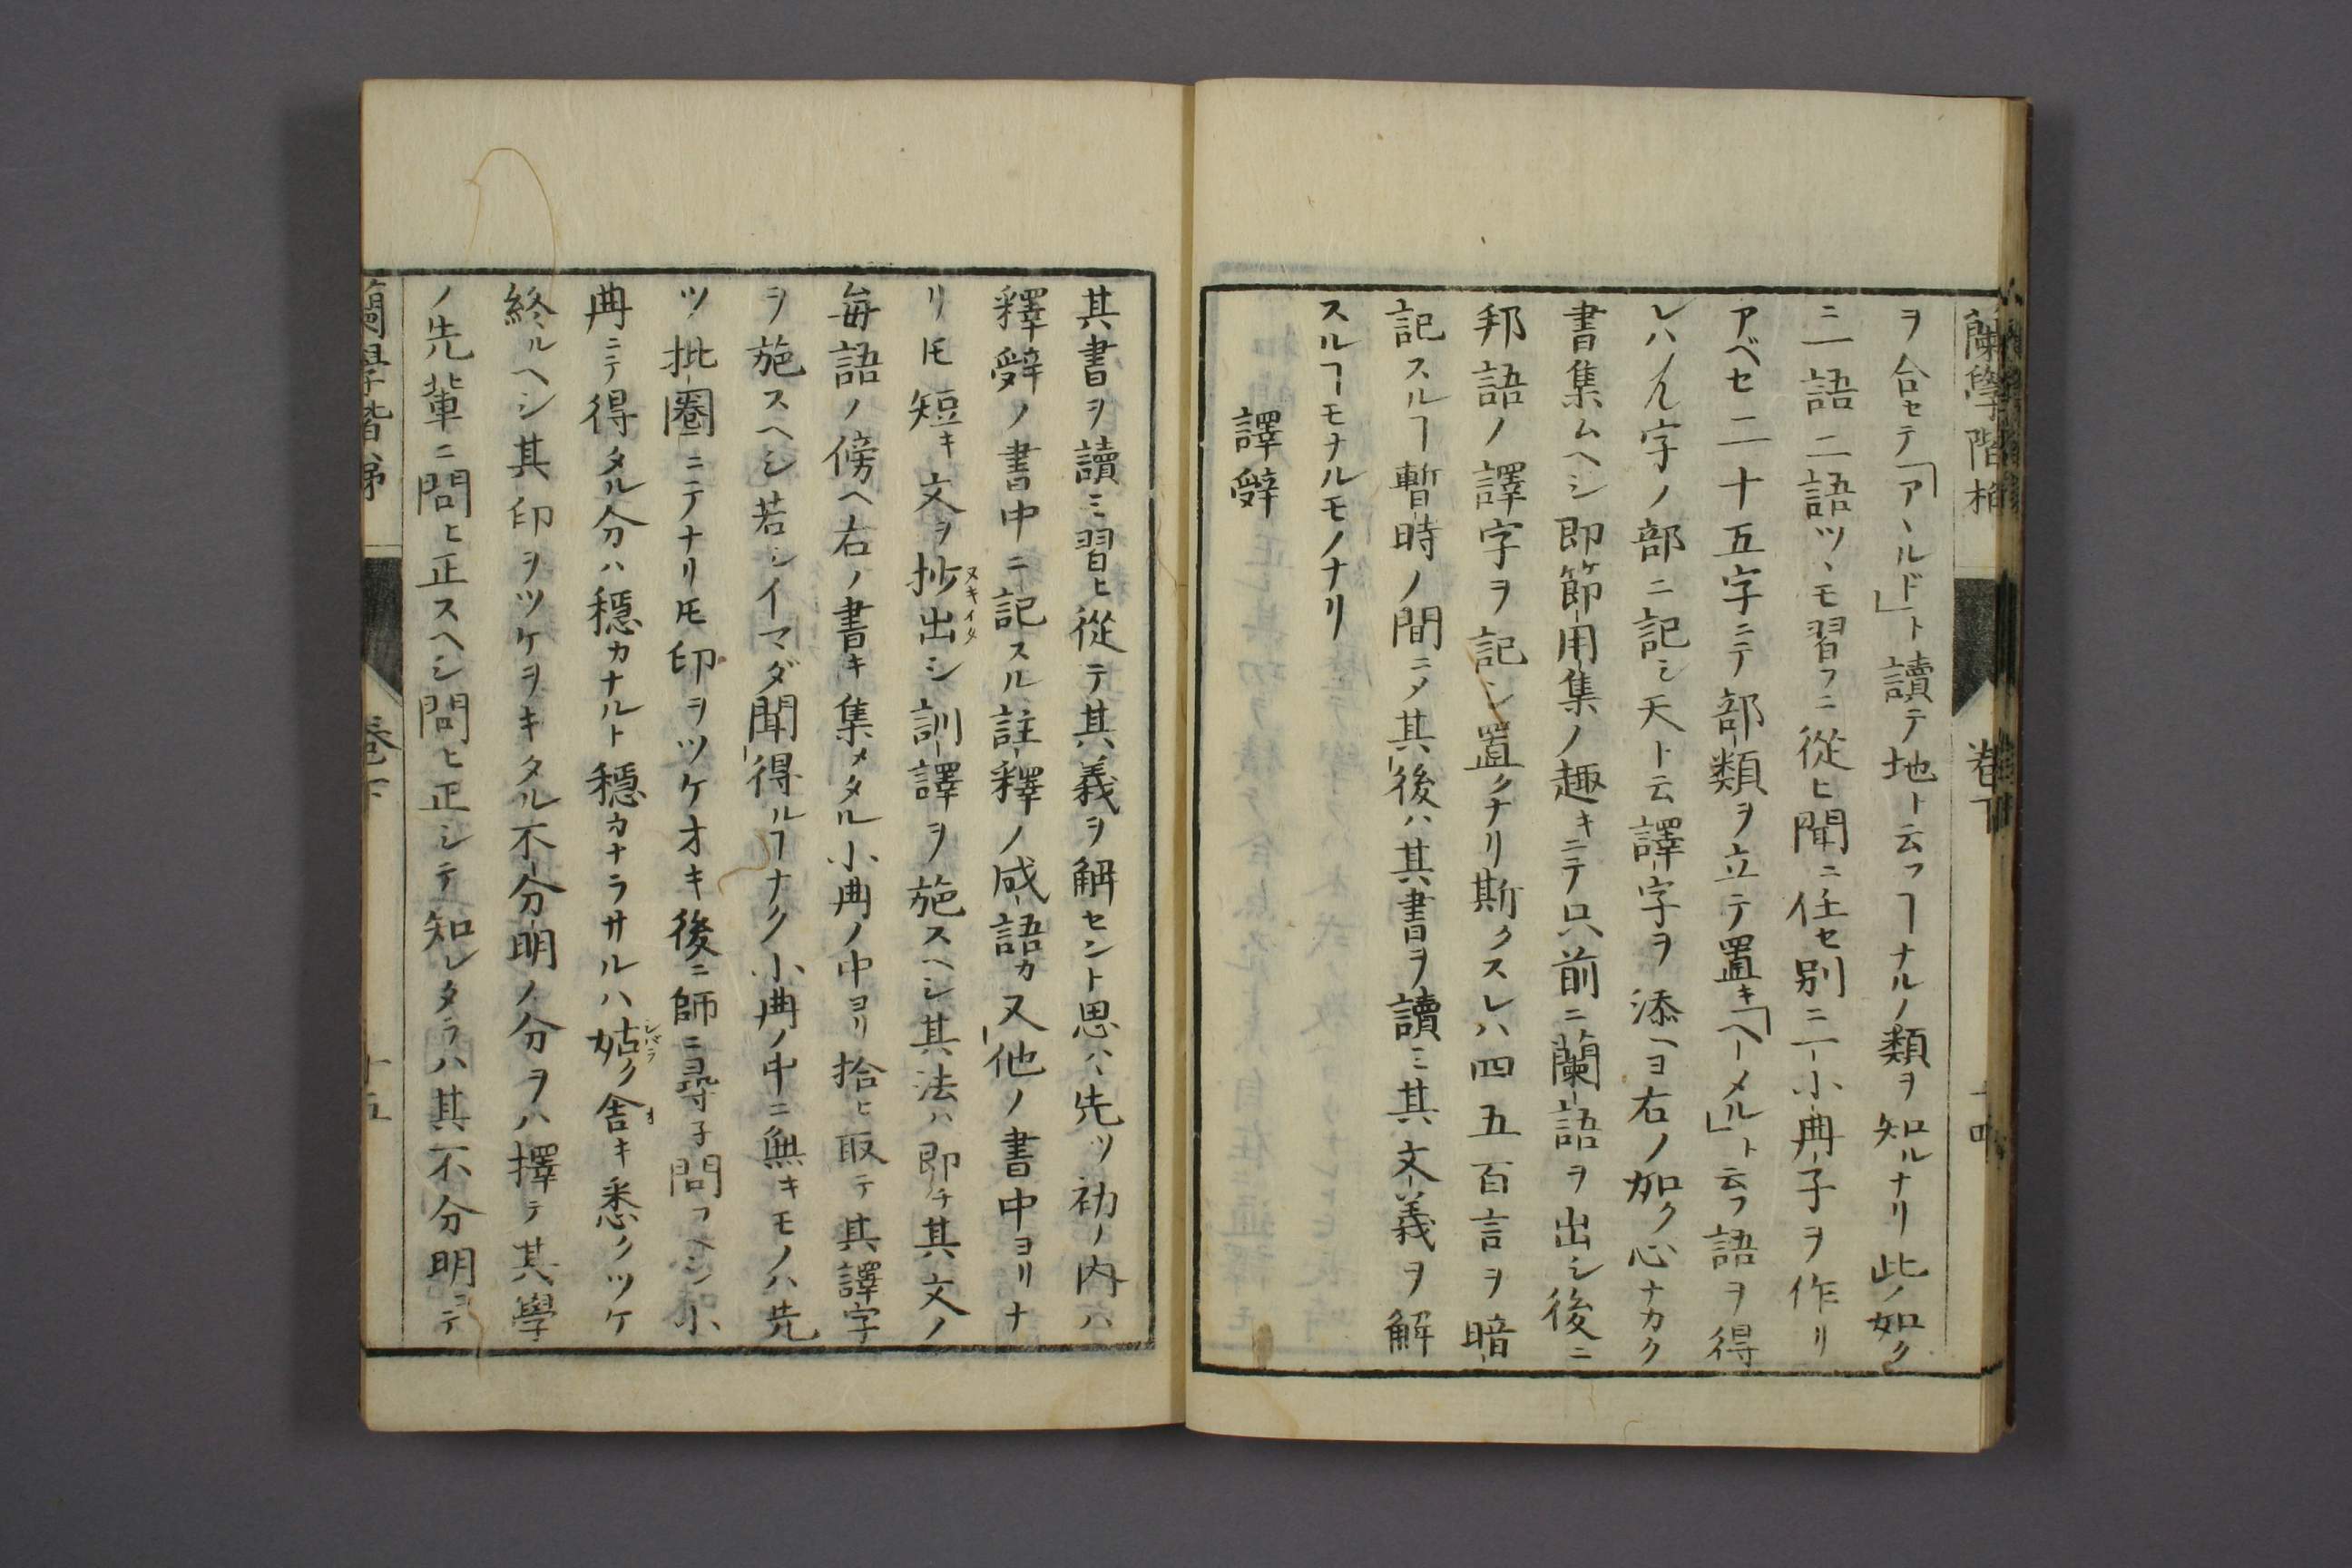 蘭學階梯
卷下
ヲ合セテ「アヽルド」ト讀テ地ト云フヿナルノ類ヲ知ルナリ此ノ如ク
ニ一語二語ツヽモ習フニ從ヒ聞ニ任セ別ニ一小冊子ヲ作リ
アベセ二十五字ニテ部類ヲ立テ置キ「ヘーメル」ト云フ語ヲ得
レハ字ノ部ニ記シ天ト云譯字ヲ添ヘヨ右ノ如ク心ナカク
書集ムヘシ即節用集ノ趣キニテ只前ニ蘭語ヲ出シ後ニ
邦語ノ譯字ヲ記シ置クナリ斯クスレハ四五百言ヲ暗
記スルヿ暫時ノ間ニメ其後ハ其書ヲ讀ミ其文義ヲ解
スルヿモナルモノナリ
譯辭
其書ヲ讀ミ習ヒ從テ其義ヲ解セント思ハヽ先ツ初ノ内ハ
釋辭ノ書中ニ記スル註釋ノ成語カ又他ノ書中ヨリナ
リ𪜈短キ文ヲ抄出シ訓譯ヲ施スヘシ其法ハ即チ其文ノ
ヌキイタ
毎語ノ傍ヘ右ノ書キ集メタル小冊ノ中ヨリ拾ヒ取テ其譯字
ヲ施スヘシ若シイマダ聞得ルヿナク小冊ノ中ニ無キモノハ先
ツ批圈ニテナリ𪜈印ヲツケオキ後ニ師ニ尋子問フヘシ小
冊ニテ得タル分ハ穩カナルト穩カナラサルハ姑ク舎キ悉クツケ
シバラ オ
終ルヘシ其印ヲツケヲキタル不分明ノ分ヲハ擇テ其學
ノ先輩ニ問ヒ正スヘシ問ヒ正シテ知レタラハ其不分明ニテ
蘭學階梯
卷下
十五